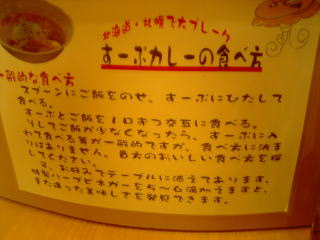 北海道・札幌で大ブレーク
すーぷカレーの食べ方
一般的な食べ方
スプーンにご飯をのせ、すーぷにひたして
食べる。
すーぷとご飯を1口ずつ交互に食べる。
そしてご飯が少なくなったら、すーぷに入
れて食べる等が一般的ですが、食べ方に決ま
りはありません。貴方のおいしい食べ方を探
してください。
又、お好みでテーブルに添えてあります、
特製ハーブビネガーを5～6滴加えますと、
また違った美味しさを発見できます。